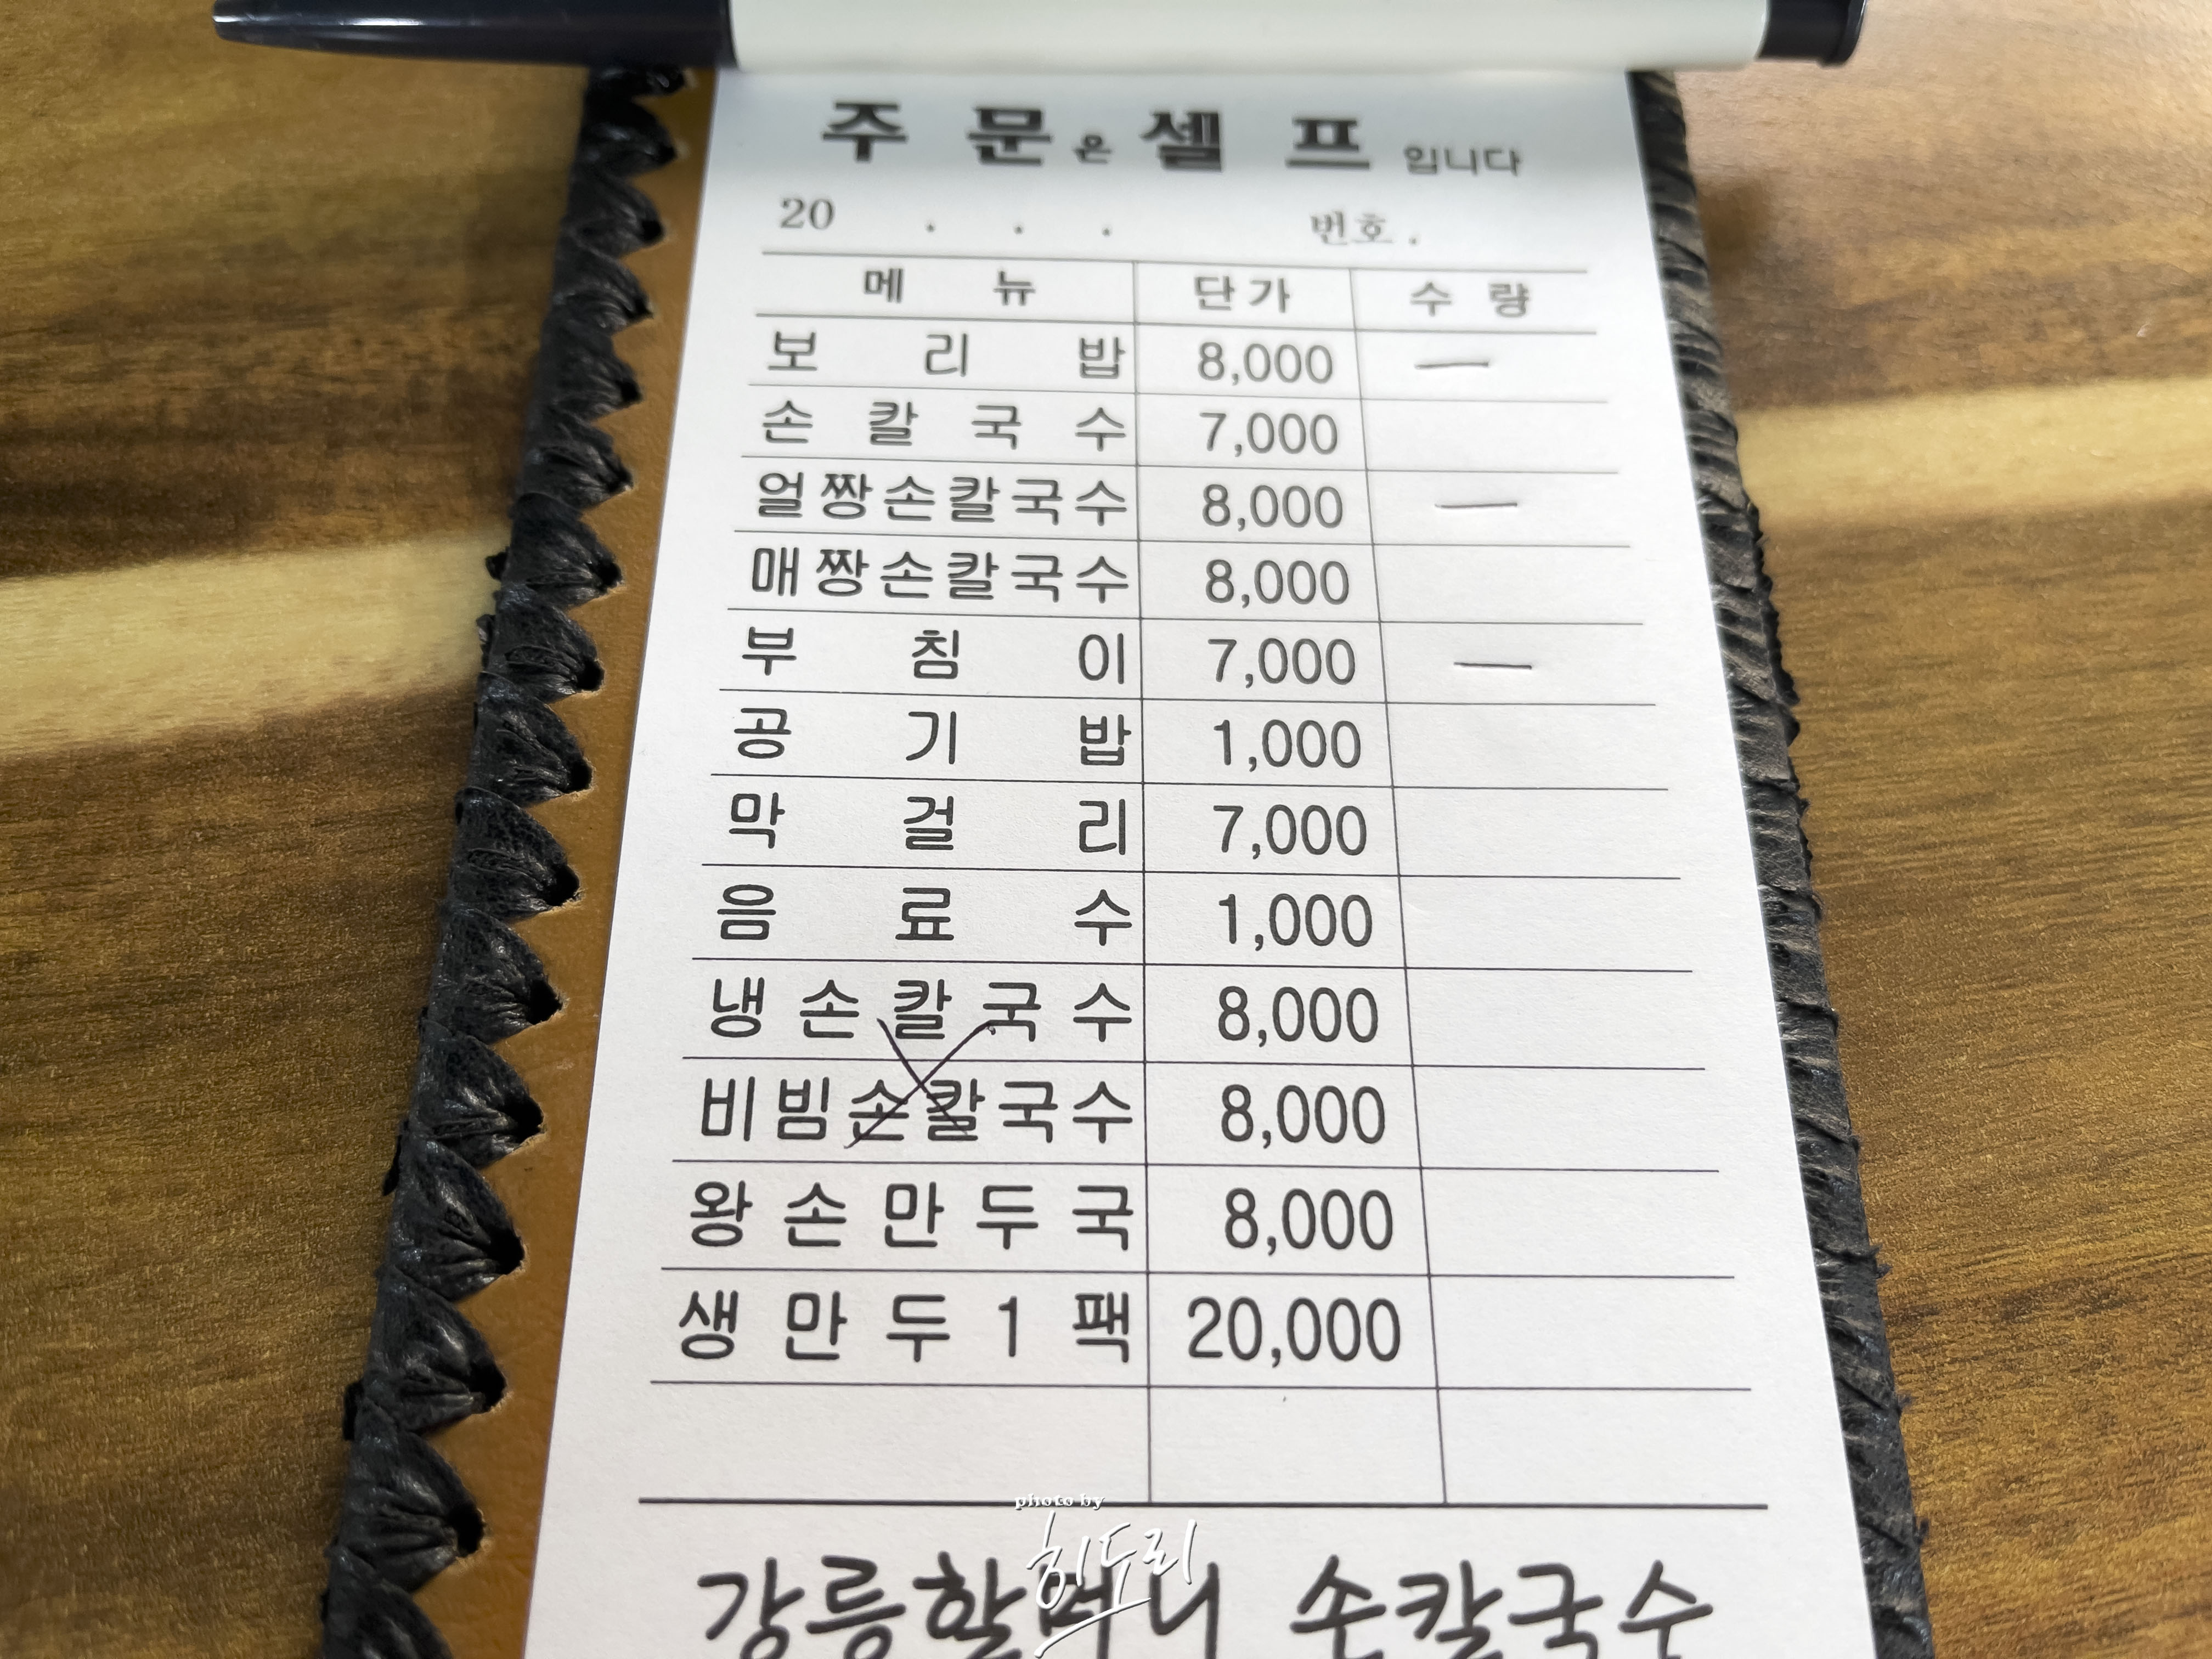 주 문은 셀 프 입니다
20 . . . 번호.
메 뉴 단가 수 량
보 리 밥 8,000 一
손 칼 국 수 7,000
얼짱손칼국수 8,000 一
매짱손칼국수 8,000
부 침 이 7,000 一
공 기 밥 1,000
막 걸 리 7,000
음 료 수 1,000
냉 손 칼 국 수 8,000
비빔손칼국수 8,000
왕 손 만 두 국 8,000
생 만 두 1 팩 20,000
photo by
히두리
강릉할머니 손칼국수